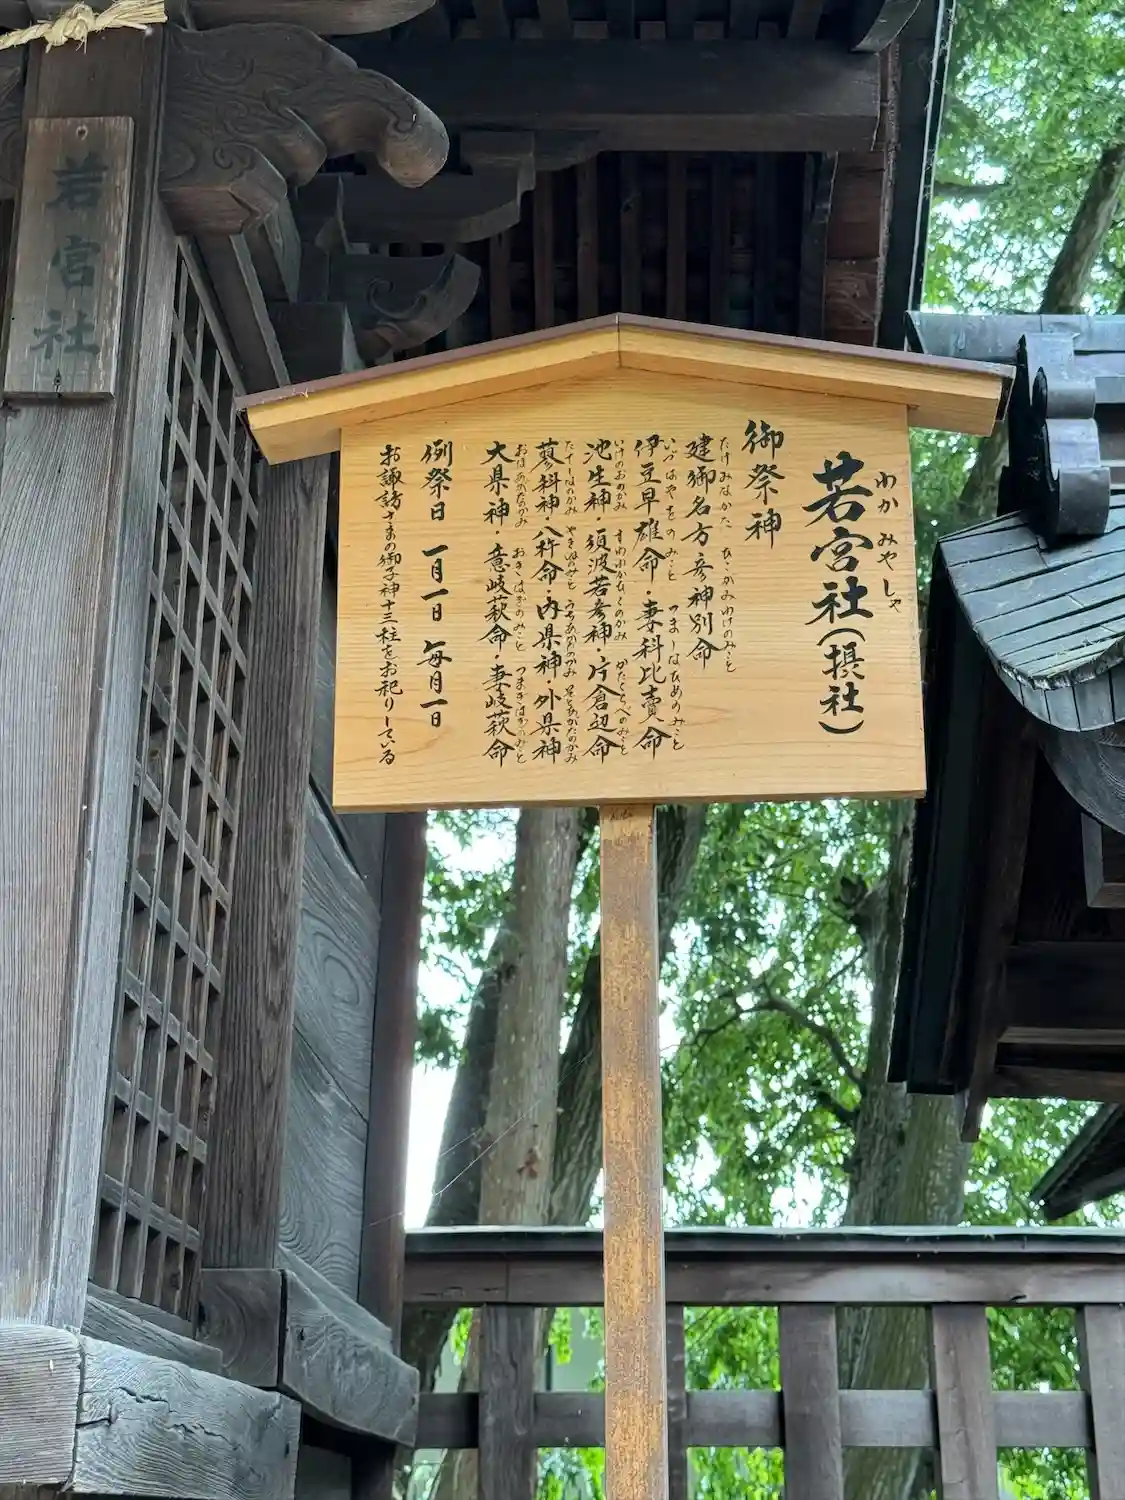 若宮社
わかみやしゃ
若宮社(摂社)
御祭神
たけみなかた ひこかみわけのみこと
建御名方彦神別命
いづはやをのみこと つましなひめのみこと
伊豆早雄命・妻科比賣命
いけのおのかみ すわわかひこのかみ かたくらべのみこと
池生神・須波若彦神・片倉辺命
たてしなのかみ やきねのみこと うちあがたのかみ そとあがたのかみ
蓼科神・八杵命・内県神・外県神
おほあがたのかみ おきはぎのみこと つまきはぎのみこと
大県神・意岐萩命・妻岐萩命
例祭日 一月一日 毎月一日
お諏訪さまの御子神十三柱をお祀りしている